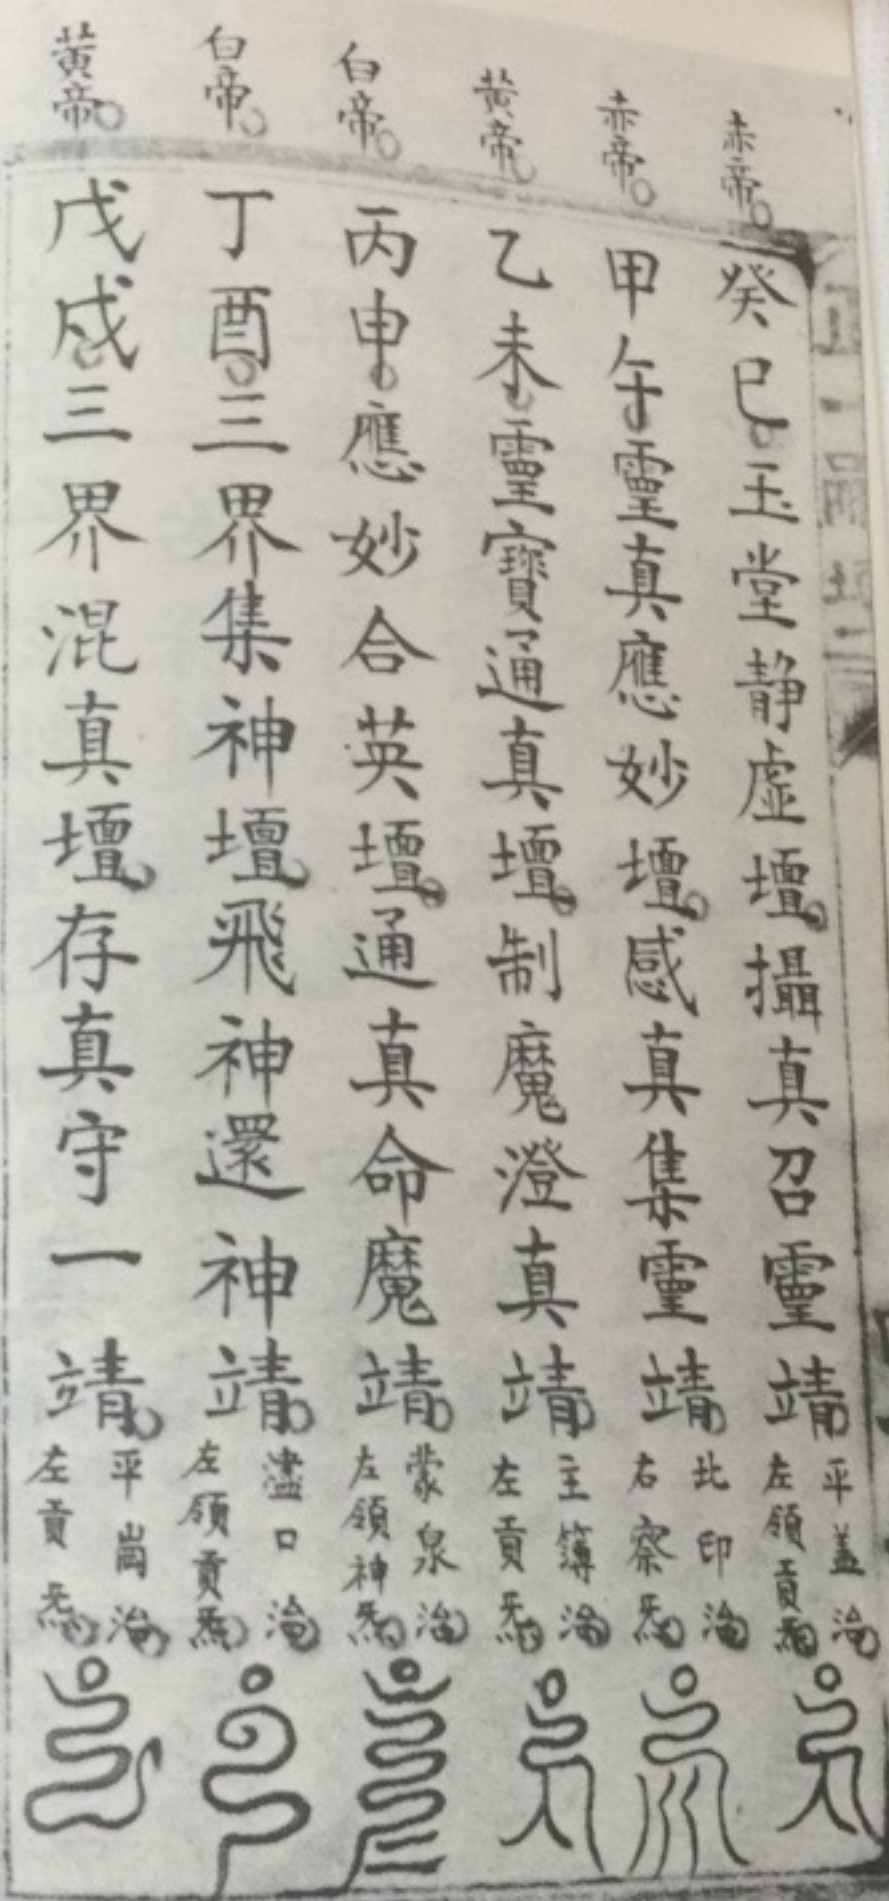 赤帝
癸巳玉堂静虛壇攝真召靈靖
平盖治
左領貢炁
赤帝
甲午靈真應妙壇感真集靈靖
北印治
右察炁
黄帝
乙未靈寶通真壇制魔澄真靖
主簿治
左貢炁
白帝
丙申應妙合英壇通真命魔靖
蒙泉治
左領神炁
白帝
丁酉三界集神壇飛神還神靖
濜口治
左領貢炁
黄帝
戊戌三界混真壇存真守一靖
平崗治
左貢炁